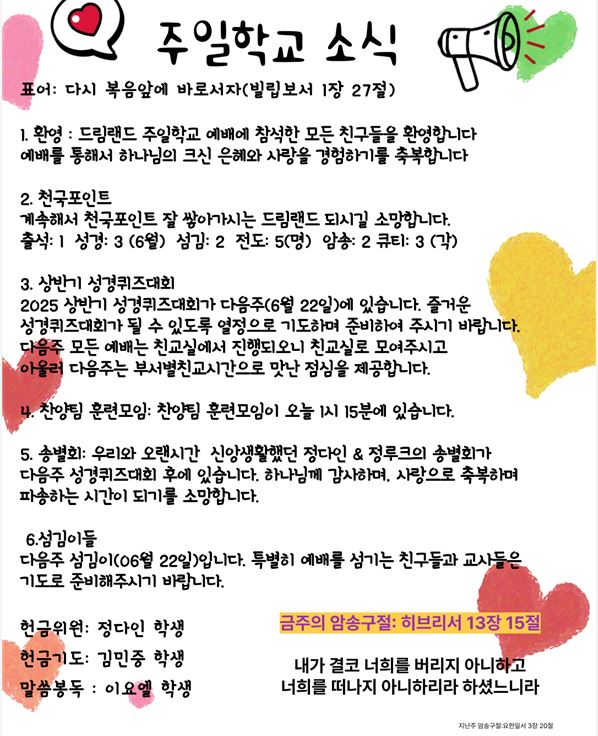 주일학교 소식
표어: 다시 복음앞에 바로서자(빌립보서 1장 27절)
1. 환영 : 드림랜드 주일학교 예배에 참석한 모든 친구들을 환영합니다
예배를 통해서 하나님의 크신 은혜와 사랑을 경험하기를 축복합니다
2. 천국포인트
계속해서 천국포인트 잘 쌓아가시는 드림랜드 되시길 소망합니다.
출석: 1 성경: 3 (6월) 섬김: 2 전도: 5(명) 암송: 2 큐티: 3 (각)
3. 상반기 성경퀴즈대회
2025 상반기 성경퀴즈대회가 다음주(6월 22일)에 있습니다. 즐거운
성경퀴즈대회가 될 수 있도록 열정으로 기도하며 준비하여 주시기 바랍니다.
다음주 모든 예배는 친교실에서 진행되오니 친교실로 모여주시고
아울러 다음주는 부서별친교시간으로 맛난 점심을 제공합니다.
4. 찬양팀 훈련모임: 찬양팀 훈련모임이 오늘 1시 15분에 있습니다.
5. 송별회: 우리와 오랜시간 신앙생활했던 정다인 & 정루크의 송별회가
다음주 성경퀴즈대회 후에 있습니다. 하나님께 감사하며, 사랑으로 축복하며
파송하는 시간이 되기를 소망합니다.
6.섬김이들
다음주 섬김이(06월 22일)입니다. 특별히 예배를 섬기는 친구들과 교사들은
기도로 준비해주시기 바랍니다.
헌금위원: 정다인 학생
헌금기도: 김민중 학생
말씀봉독 : 이요엘 학생
금주의 암송구절: 히브리서 13장 15절
내가 결코 너희를 버리지 아니하고
너희를 떠나지 아니하리라 하셨느니라
지난주 암송구절:요한일서 3장 20절